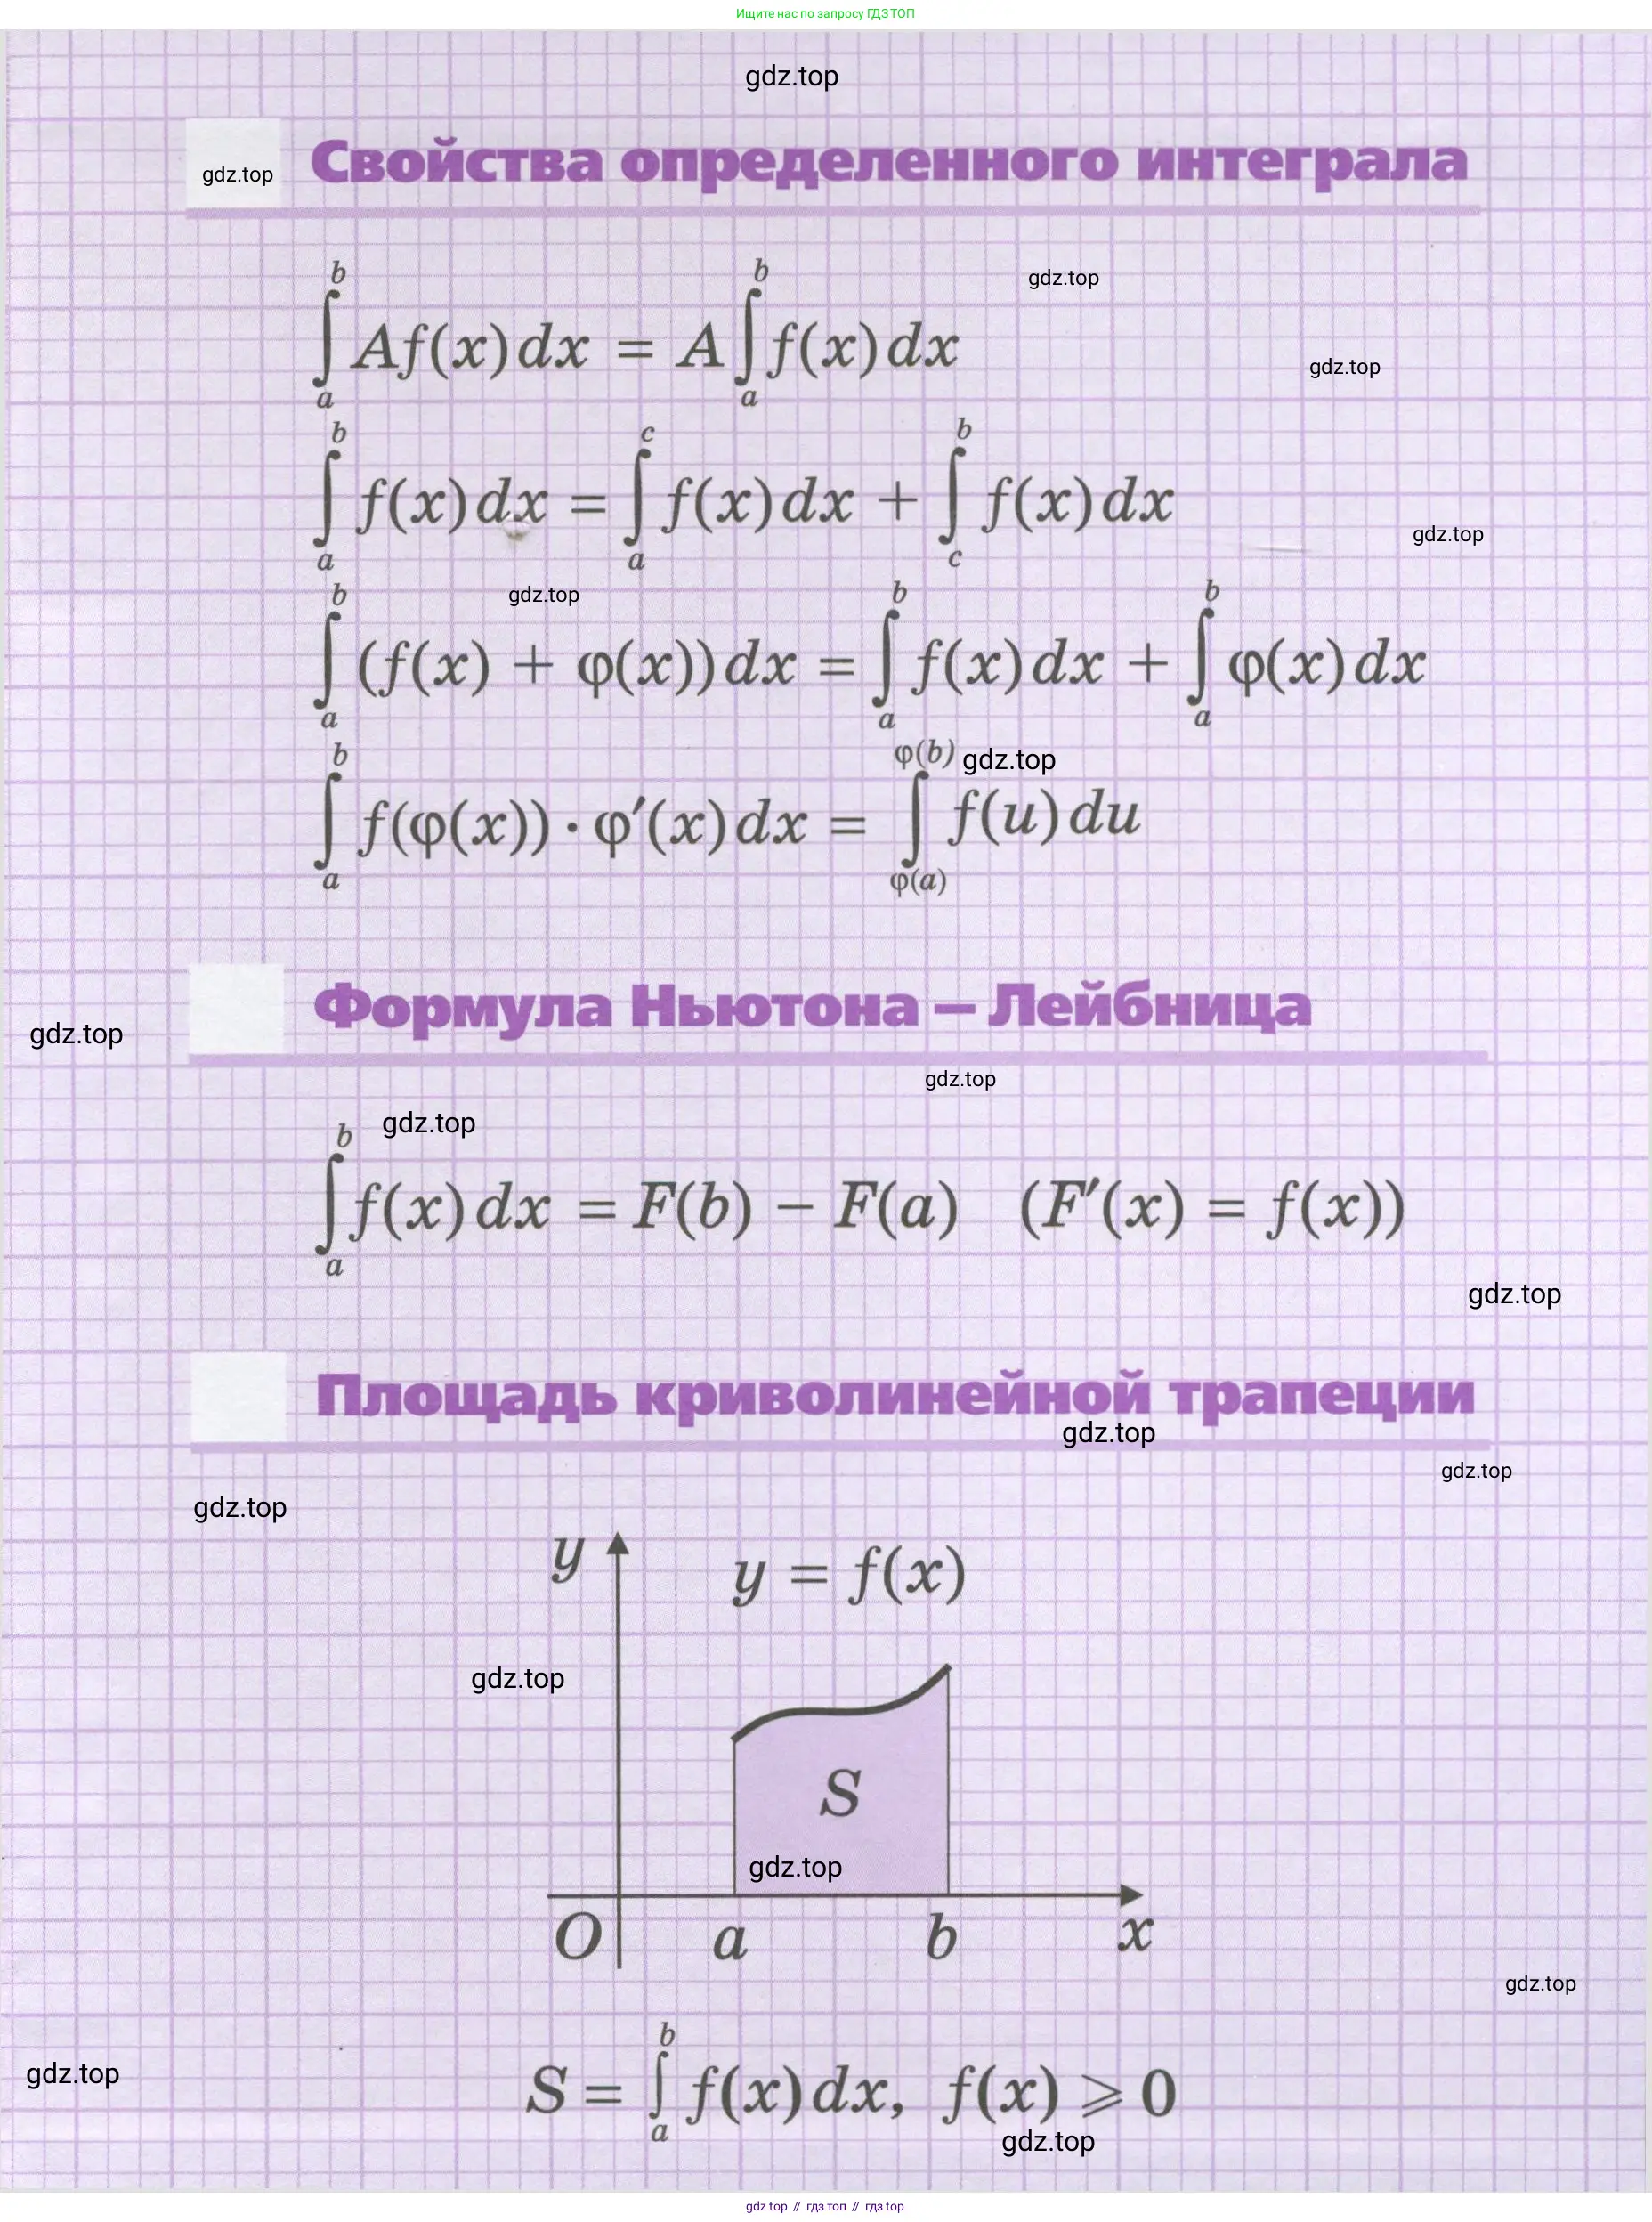 Ищите нас по запросу ГДЗ ТОП
gdz.top
gdz.top
Свойства определенного интеграла
gdz.top
∫_a^b Af(x)dx = A∫_a^b f(x)dx
gdz.top
∫_a^b f(x)dx = ∫_a^c f(x)dx + ∫_c^b f(x)dx
gdz.top
gdz.top
∫_a^b (f(x) + φ(x))dx = ∫_a^b f(x)dx + ∫_a^b φ(x)dx
gdz.top
∫_a^b f(φ(x)) · φ′(x)dx = ∫_{φ(a)}^{φ(b)} f(u)du
Формула Ньютона – Лейбница
gdz.top
gdz.top
gdz.top
∫_a^b f(x)dx = F(b) − F(a) (F′(x) = f(x))
gdz.top
Площадь криволинейной трапеции
gdz.top
gdz.top
gdz.top
y
y = f(x)
gdz.top
S
gdz.top
O a b x
gdz.top
gdz.top
S = ∫_a^b f(x)dx, f(x) ⩾ 0
gdz.top
gdz top // гдз топ // гдз top